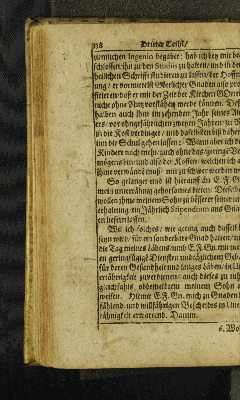 Dritter Theil/
ziemlichen Ingenio begabet: hab ich bey mir be-
schlossen/ ihn zu den Studiis zu halten/ und in der
heiligen Schrifft studieren zu lassen/ der Hoffn
ung/ er vermittelst Göttlicher Gnaden also pro-
fitieren/ daß er mit der Zeit der Kirchen GOttes
nicht ohne Nutz vorstehen werde können. Deß-
halben auch ihm im zehenden Jahr seines Al-
ters/ vor ohngefährlich zweyen Jahren/ zu
die Kost verdinget/ und daselbsten biß daher
inn die Schul gehen lassen: Wann aber ich der
Kinder noch mehr/ auch ohne das geringe Ver-
mögens bin/ und also der Kosten/ welchen ich auff
ihne verwenden muß/ mir zu schwer werden w
So gelanget und ist hierauff an E. F. G.
mein unterthänig gehorsames bitten/ Dieselb
wollen ihme meinem Sohn zu besserer seiner un-
terhaltung ein Jährlich Stipendium aus Gnad
en lieffern lassen.
Wil ich solches/ wie gering auch dasselb
seyn wird/ für ein sonderbare Gnad halten/
die Tag meines Lebens/ umb E. F. Gn. mit mei-
en geringfügigen Diensten unabläßlichem Geb
für deren Gesundheit und langes Leben/ in Un-
terthänigkeit zu verdienen/ auch dieses zu
gleichfals obbemeldtem meinem Sohn
weisen. Hiemit E. F. Gn. mich zu Gnaden
fehlend/ und willfährigen Bescheides in Unter-
thänigkeit erwartend. Datum.